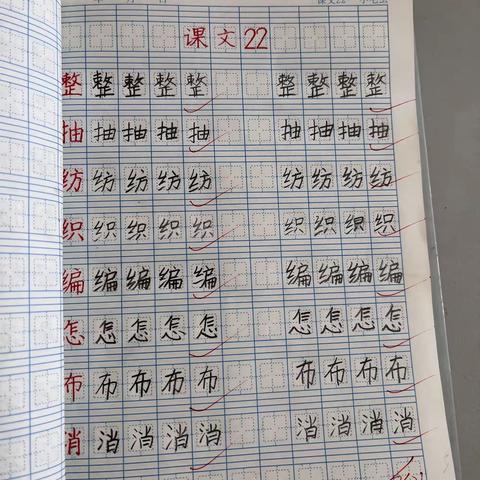 课文22
课文22
整整整整整 整整整整
抽抽抽抽抽 抽抽抽抽
纺纺纺纺纺 纺纺纺纺
织织织织织 织织织织
编编编编编 编编编编
怎怎怎怎怎 怎怎怎怎
布布布布布 布布布布
消消消消消 消消消消